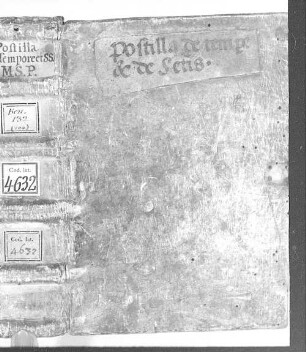 Postilla
de tempore et SS
M.S.P.
Cod. lat.
4632
Cod. lat.
4632
Postilla de temp̄e
& de Sctis.